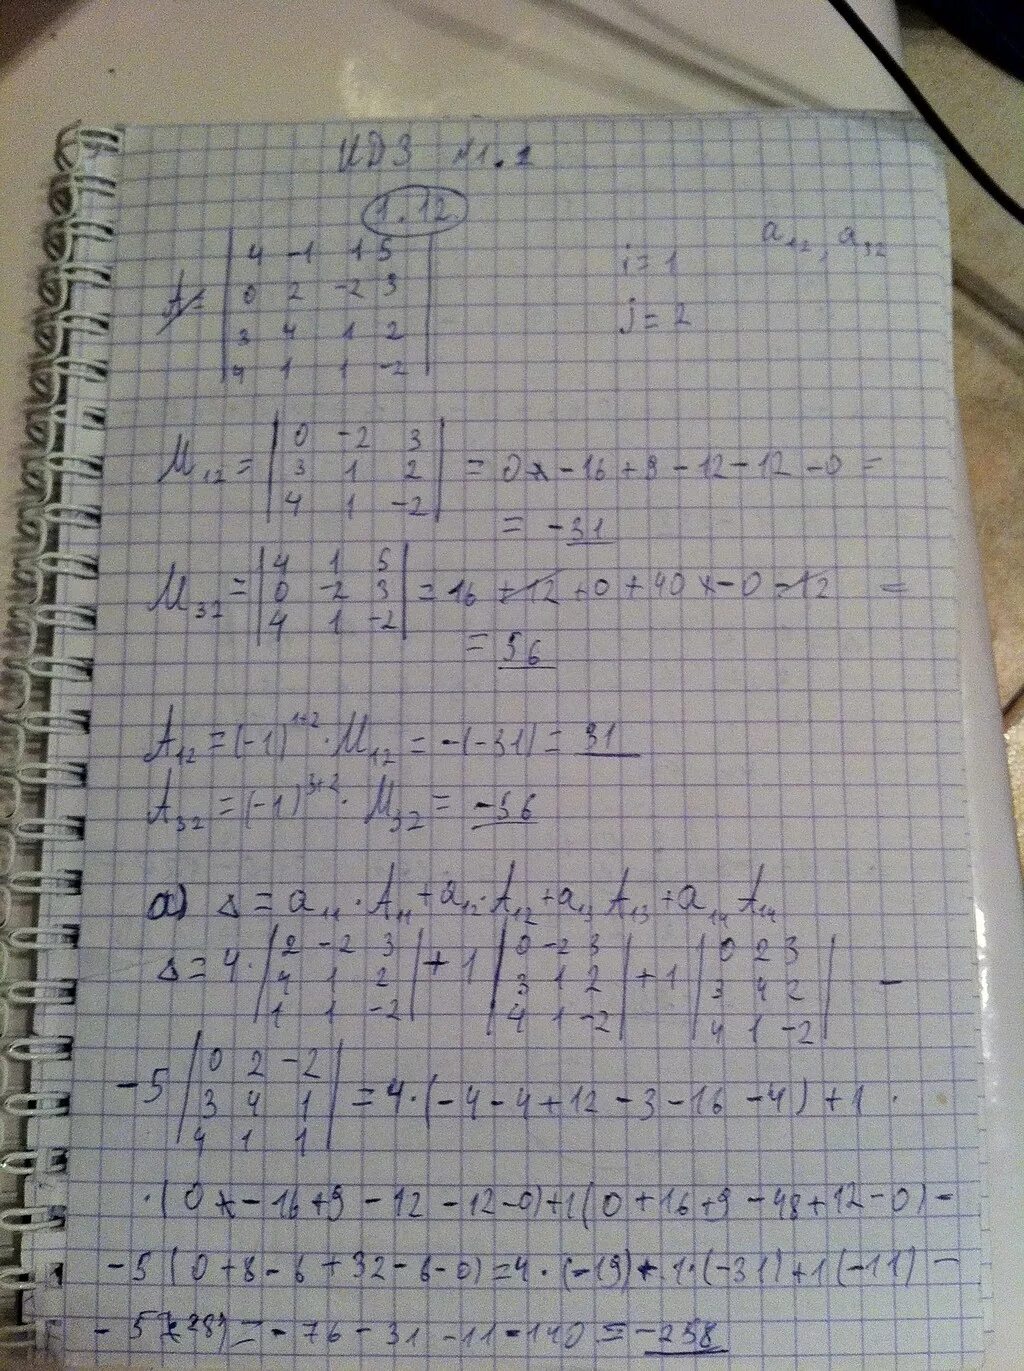 ИДЗ №1.1
1.12
A = | 4 -1 1 5 |
| 0 2 -2 3 |
| 3 4 1 2 |
| 4 1 1 -2 |
i = 1
j = 2
a₁₂, a₃₂
M₁₂ = | 0 -2 3 |
| 3 1 2 |
| 4 1 -2 | = 0 - 16 + 9 - 12 - 12 - 0 =
= -31
M₃₂ = | 4 1 5 |
| 0 -2 3 |
| 4 1 -2 | = 16 + 12 + 0 + 40 - 0 - 12 =
= 56
A₁₂ = (-1)¹⁺² · M₁₂ = -(-31) = 31
A₃₂ = (-1)³⁺² · M₃₂ = -56
а) Δ = a₁₁ · A₁₁ + a₁₂ · A₁₂ + a₁₃ A₁₃ + a₁₄ A₁₄
Δ = 4 · | 2 -2 3 | + 1 | 0 -2 3 | + 1 | 0 2 3 | -
| 4 1 2 | | 3 1 2 | | 3 4 2 |
| 1 1 -2 | | 4 1 -2 | | 4 1 -2 |
-5 | 0 2 -2 |
| 3 4 1 | = 4 · (-4 - 4 + 12 - 3 - 16 - 4) + 1 ·
| 4 1 1 |
· (0 - 16 + 9 - 12 - 12 - 0) + 1 (0 + 16 + 9 - 48 + 12 - 0) -
-5 (0 + 8 - 6 + 32 - 6 - 0) = 4 · (-19) + 1 · (-31) + 1 (-11) -
- 5 (28) = -76 - 31 - 11 - 140 = -258